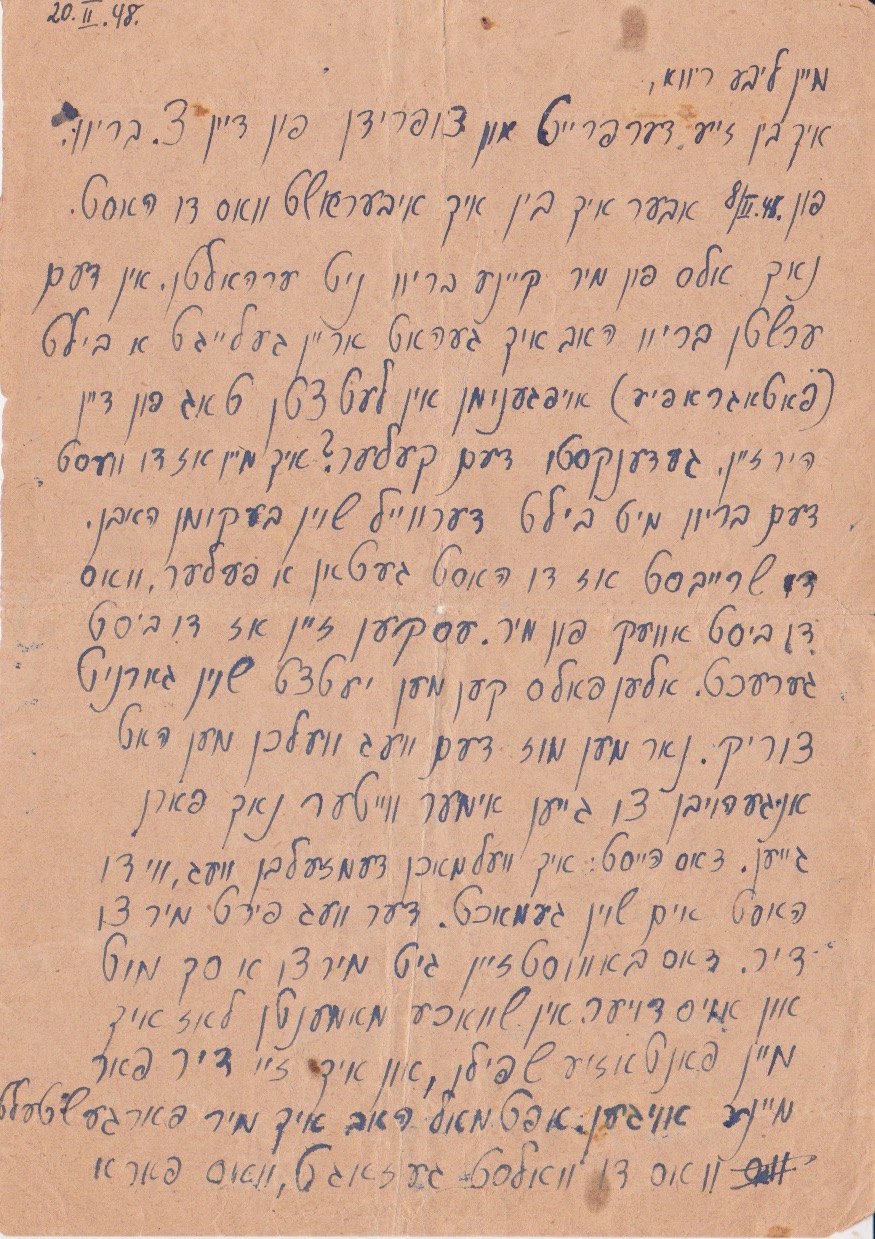 20.II.48.
מיין ליבע ריווא,
איך בין זייע דערפרייט און צופרידן פון דיין צ. בריוו.
פון 8/II.48. אבער איך בין איך איבעראשט וואס דו האסט.
נאך אלס פון מיר קיינע בריוו ניט ערהאלטן. אין דעם
ערשטן בריוו האב איך געהאט אריין געלייגט א בילט
(פאטאגראפיע) אויפגענימן אין לעטצטן טאג פון דיין
היר זיין. געדענקסטו דעם קעלער? איך מיין אז דו וועסט
דעם בריוו מיט בילט דערווייל שוין בעקומן האבן.
די שרייבסט אז דו האסט געטאן א פעלער, וואס
דו ביסט אוועק פון מיר. עס קען זיין אז דו ביסט
גערעכט. אלען פאלס קען מען יעטצט שוין גארניט
צוריק. נאר מען מוז דעם וועג וועלכן מען האט
אניגעהויבן צו גייען אימער ווייטער נאך פארן
גייען. דאס הייסט: איך וועל מאכן דעמזעלבן וועג, ווי דו
האסט אים שוין געמאכט. דער וועג פירט מיר צו
דיר. דאס באוווסטזיין גיט מיר צו א סך מוט
און אויסדויער. אין שוואכע מאמענטן לאז איך
מיין פאנטאזיע שפילן, און איך זיי דיר פאר
מיינע אוויגען. אפט מאל האב איך מיר פארגעשטעלט
וואס דו וואלסט געזאגט, וואס פארא